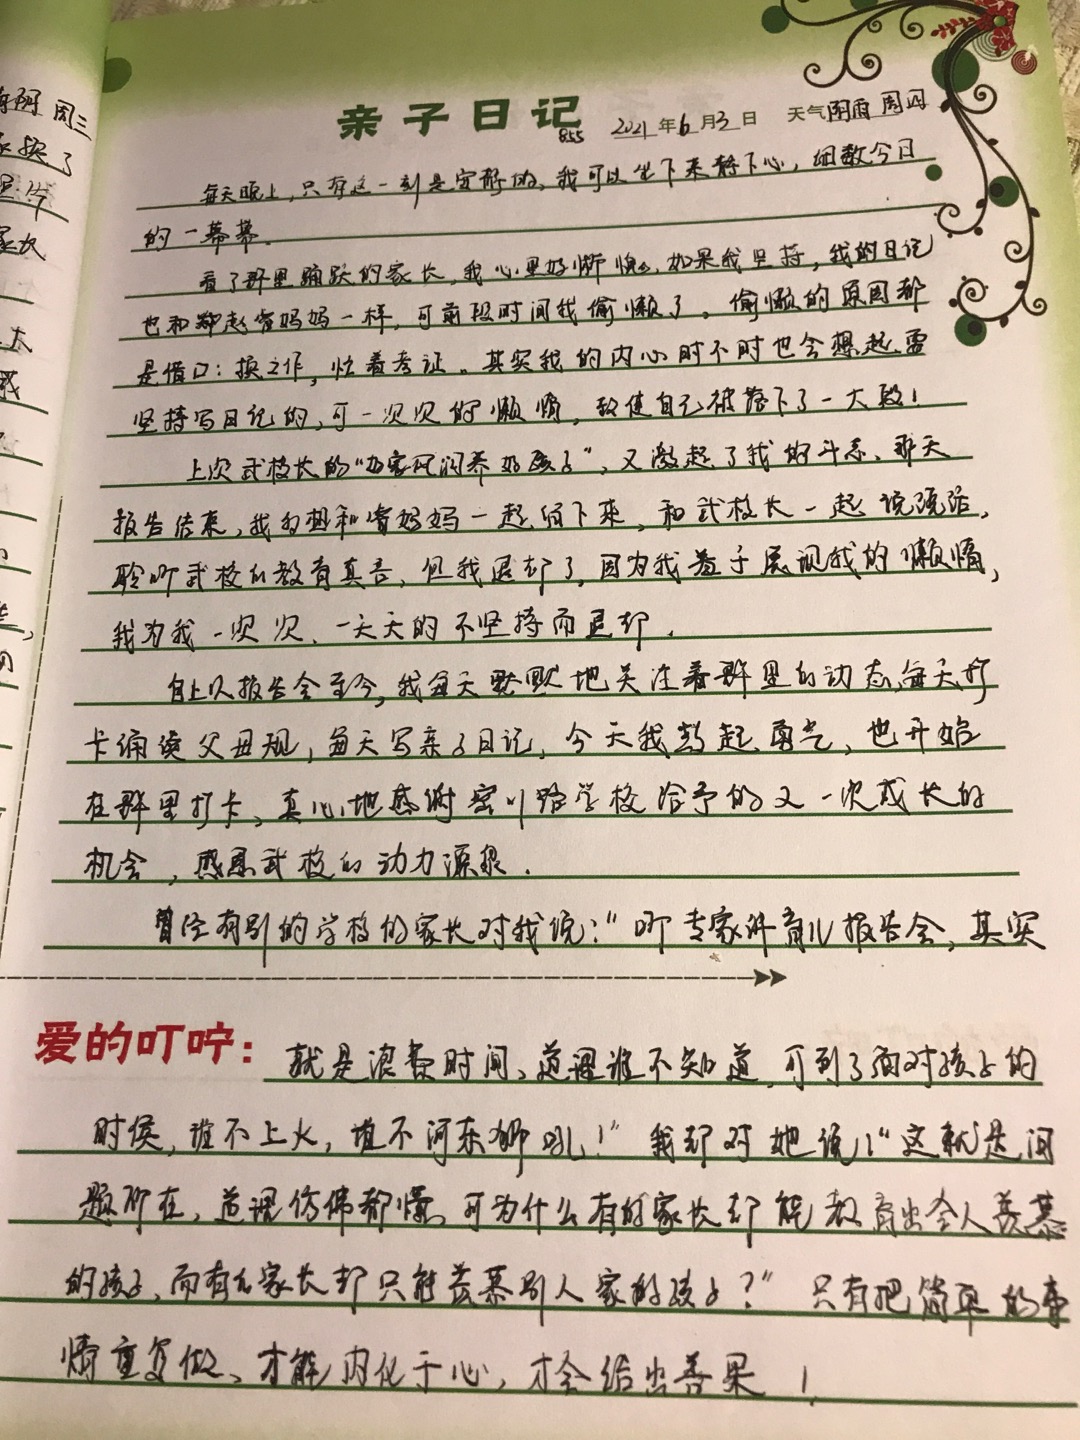 亲子日记 855 2021年6月3日 天气阴雨 周四
每天晚上，只有这一刻是安静的，我可以坐下来静下心，细数今日
的一幕幕。
看了群里踊跃的家长，我心里好惭愧，如果我坚持，我的日记
也和赵 妈妈一样，可前段时间我偷懒了。偷懒的原因都
是借口：换工作，忙着考证。其实我的内心时不时也会想起要
坚持写日记的，可一次次的懒惰，致使自己被落下了一大段！
上次武校长的“好家风润养好孩子”，又激起了我的斗志，那天
报告结束，我力想和 妈妈一起留下来，和武校长一起说说话，
聆听武校的教育真言，但我退却了，因为我羞于展现我的懒惰，
我为我一次次、一天天的不坚持而退却．
自上次报告会至今，我每天默默地关注着群里的动态，每天打
卡诵读父母规，每天写亲子日记，今天我鼓起勇气，也开始
在群里打卡，真心地感谢密川路学校给予的又一次成长的
机会，感恩武校的动力源泉．
曾经有别的学校的家长对我说：“听专家讲育儿报告会，其实
爱的叮咛： 就是浪费时间，道理谁不知道，可到了面对孩子的
时候，谁不上火，谁不河东狮吼！”我却对她说：“这就是问
题所在，道理仿佛都懂，可为什么有的家长却能教育出令人羡慕
的孩子，而有的家长却只能羡慕别人家的孩子？”只有把简单的事
情重复做，才能内化于心，才会结出善果！